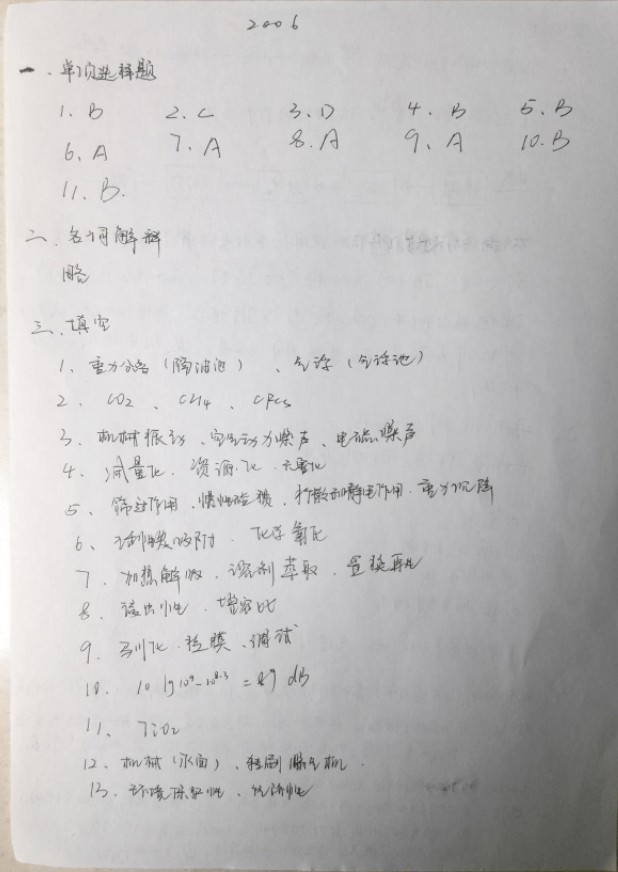 2006
一、单项选择题
1. B 2. C 3. D 4. B 5. B
6. A 7. A 8. A 9. A 10. B
11. B.
二、名词解释
略
三、填空
1、重力分离(隔油池)、气浮(气浮池)
2、CO2、CH4、CFCs
3、机械振动、空气动力噪声、电磁噪声
4、减量化、资源化、无害化
5、筛过作用、惯性碰撞、扩散和静电作用、重力沉降
6、活性炭吸附、化学氧化
7、加热解吸、溶剂萃取、置换再生
8、溢出性、增容比
9、驯化、挂膜、调试
10、10 lg10^9-10^8.3 = 89 dB
11、TiO2
12、机械(水面)、转刷曝气机.
13、环境保护性、经济性